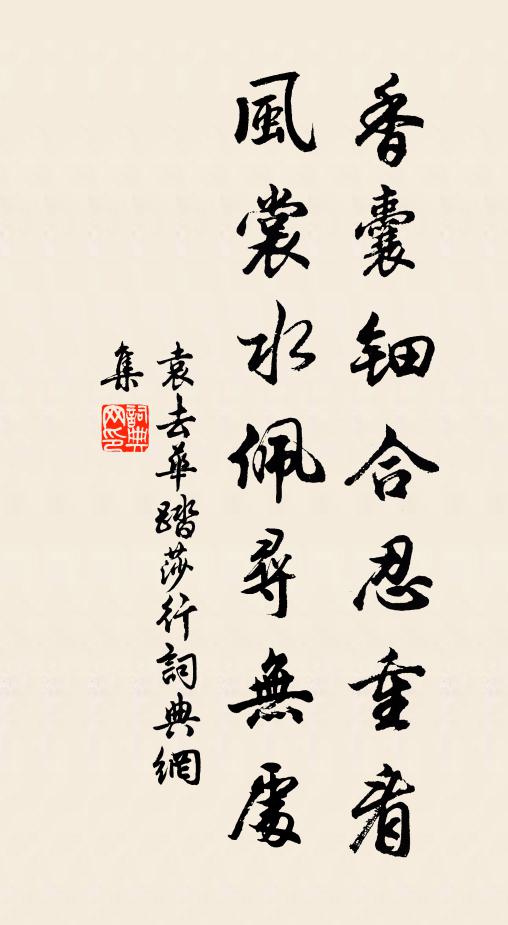 香囊鈿合忍重看
風裳水佩尋無處
袁去華踏莎行詞典網
集
詞典
网印